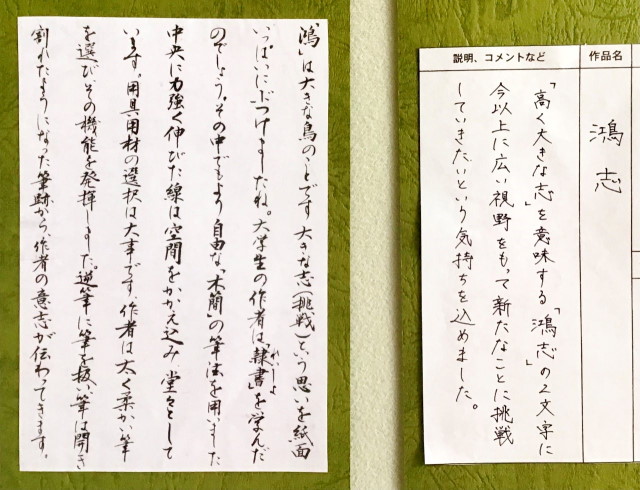 鴻」は大きな鳥のことです 大きな志(挑戦)という思いを紙面
いっぱいにぶつけましたね。大学生の作者は「隷書」を学んだ
れいしょ
のでしょう。その中でもより自由な「木簡」の筆法を用いました
中央に力強く伸びた線は空間をかかえ込み 堂々として
います。用具用材の選択は大事です。作者は太く柔かい筆
を選びその機能を発揮しました。逆筆に筆を扱い筆は開き
割れたようになった筆跡から、作者の意志が伝わってきます。
作品名
鴻志
説明、コメントなど
「高く大きな志」を意味する「鴻志」の2文字に
今以上に広い視野をもって新たなことに挑戦
していきたいという気持ちを込めました。